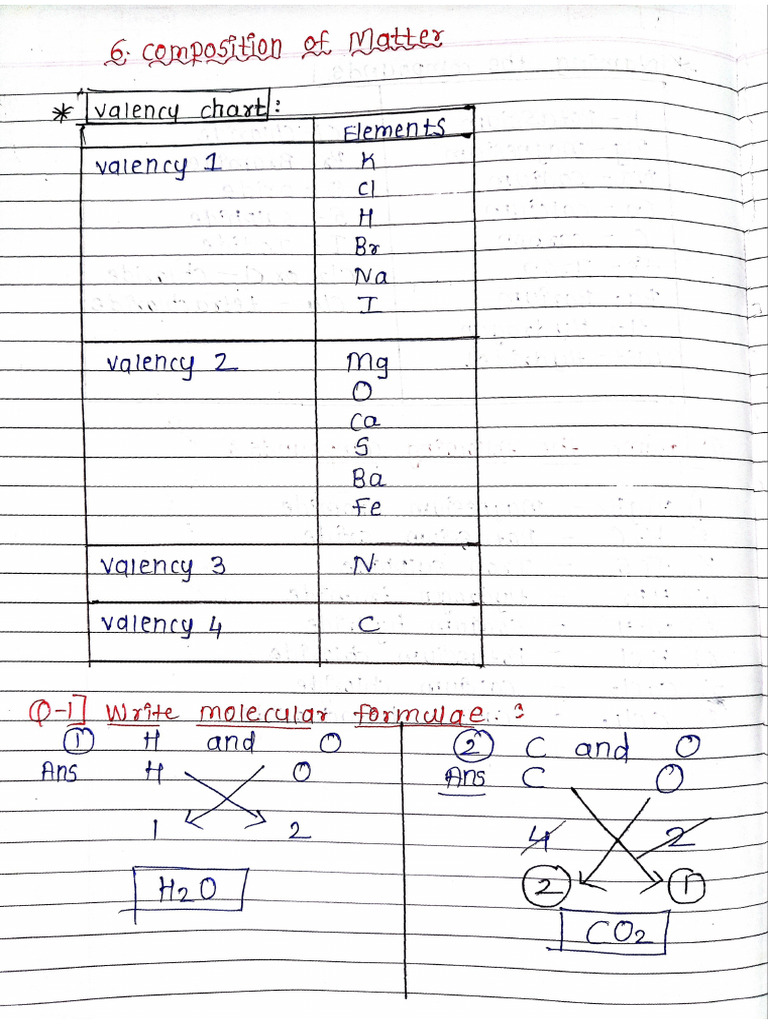 6. Composition of Matter
* Valency chart :
Elements
Valency 1 K
Cl
H
Br
Na
I
Valency 2 Mg
O
Ca
S
Ba
Fe
Valency 3 N
Valency 4 C
Q-1] Write molecular formulae :
① H and O
Ans H O
1 2
H2O
② C and O
Ans C O
4 2
② ①
CO2